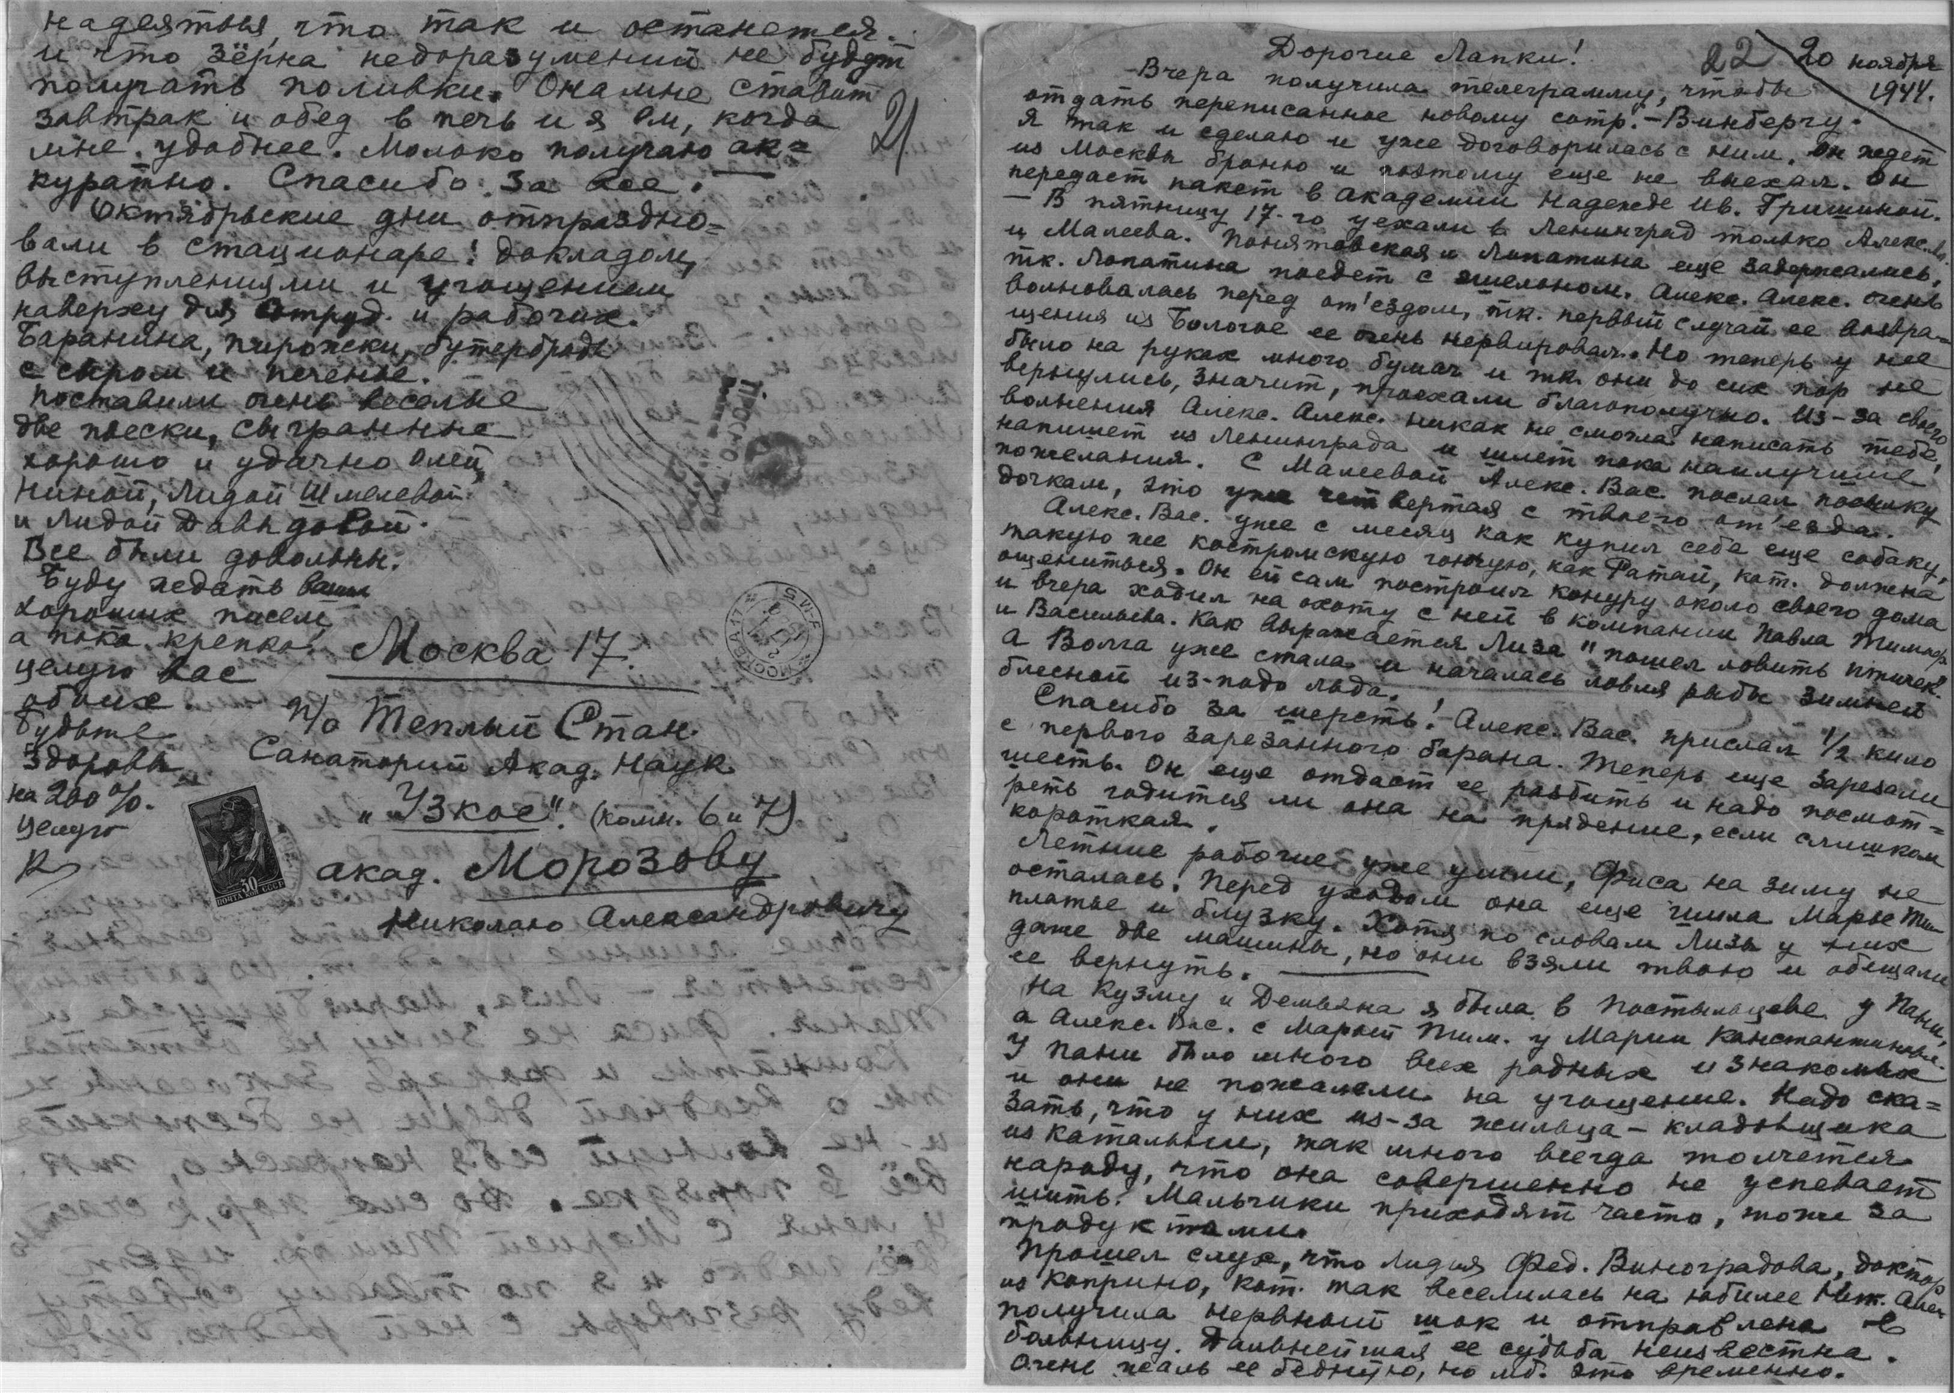 надеяться, что так и останется.
и что зёрна недоразумений не будут
получать поливки. Она мне ставит
завтрак и обед в печь и я ем, когда
мне удобнее. Молоко получаю ак=
куратно. Спасибо за все.
21
Октябрьские дни отпраздно=
вали в стационаре: докладом,
выступлениями и угощением
наверху для сотруд. и рабочих.
Баранина, пирожки, бутерброды
с сыром и печенье.
Поставили очень веселые
две пьески, сыгранные
хорошо и удачно Олей,
Ниной, Лидой Шмелевой
и Лидой Давыдовой.
Все были довольны.
Буду ждать ваших
хороших писем,
а пока крепко
целую Вас
обоих
Будьте
здоровы
на 200%.
Целую
Москва 17.
п/о Теплый Стан
Санаторий Акад. Наук
"Узкое". (комн. 6 и 7)
акад. Морозову
Николаю Александровичу
50
ПОЧТА СССР
МОСКВА
Дорогие Лапки!
22
20 ноября
1944.
Вчера получила телеграмму, чтобы
отдать переписанное новому сотр. - Винбергу.
Я так и сделаю и уже договорилась с ним. Он ждет
из Москвы броню и поэтому еще не выехал. Он
передаст пакет в Академии Надежде Ив. Гришиной.
- В пятницу 17-го уехали в Ленинград только Алекс.
и Малеева. Понятовская и Лопатина еще задержались,
тк. Лопатина поедет с эшелоном. Алекс. Алекс. очень
волновалась перед от'ездом, тк. первый случай ее возвра=
щения из Бологое ее очень нервировал. Но теперь у нее
было на руках много бумаг и тк. они до сих пор не
вернулись, значит, проехали благополучно. Из-за своего
волнения Алекс. Алекс. никак не смогла написать тебе,
напишет из Ленинграда и шлет пока наилучшие
пожелания. С Малеевой Алекс. Вас. послал посылку
дочкам, это уже четвертая с твоего от'езда.
Алекс. Вас. уже с месяц как купил себе еще собаку,
такую же костромскую гончую, как Ратай, кот. должна
ощениться. Он ей сам построил конуру около своего дома
и вчера ходил на охоту с ней в компании Павла Тимоф.
и Васильева. Как выражается Лиза "пошел ловить птичек".
А Волга уже стала и началась ловля рыбы зимней
блесной из-подо льда.
Спасибо за шерсть! - Алекс. Вас. прислал 1/2 кило
с первого зарезанного барана. Теперь еще зарезали
шесть. Он еще отдаст ее разбить и надо посмот=
реть годится ли она на прядение, если слишком
короткая.
Летние рабочие уже ушли, Фиса на зиму не
осталась. Перед уходом она еще шила Марье Тим
платье и блузку. Хотя по словам Лизы у них
даже две машины, но они взяли твою и обещали
ее вернуть.
На Кузму и Демьяна я была в Постыльцеве у Пани,
а Алекс. Вас. с Марьей Тим. у Марии Константиновны.
У Пани было много всех родных и знакомых
и они не пожалели на угощение. Надо ска=
зать, что у них из-за жильца - кладовщика
из катальни, так много всегда толчется
народу, что она совершенно не успевает
шить. Мальчики приходят часто, тоже за
продуктами.
Прошел слух, что Лидия Фед. Виноградова, доктор
из Коприно, кот. так веселилась на юбилее Ник. Алек
получила нервный шок и отправлена в
больницу. Дальнейшая ее судьба неизвестна.
Очень жаль ее бедную, но мб. это временно.